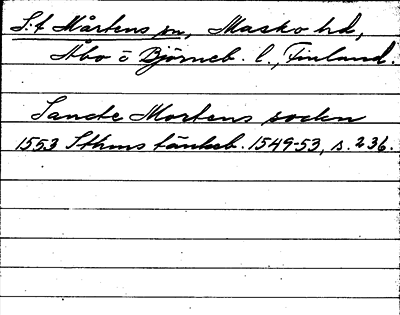 S:t Mårtens sn, Masko hd,
Åbo o Björneb. l., Finland.
Sancte Mortens socken
1553 Sthms tänkeb. 1549-53, s. 236.